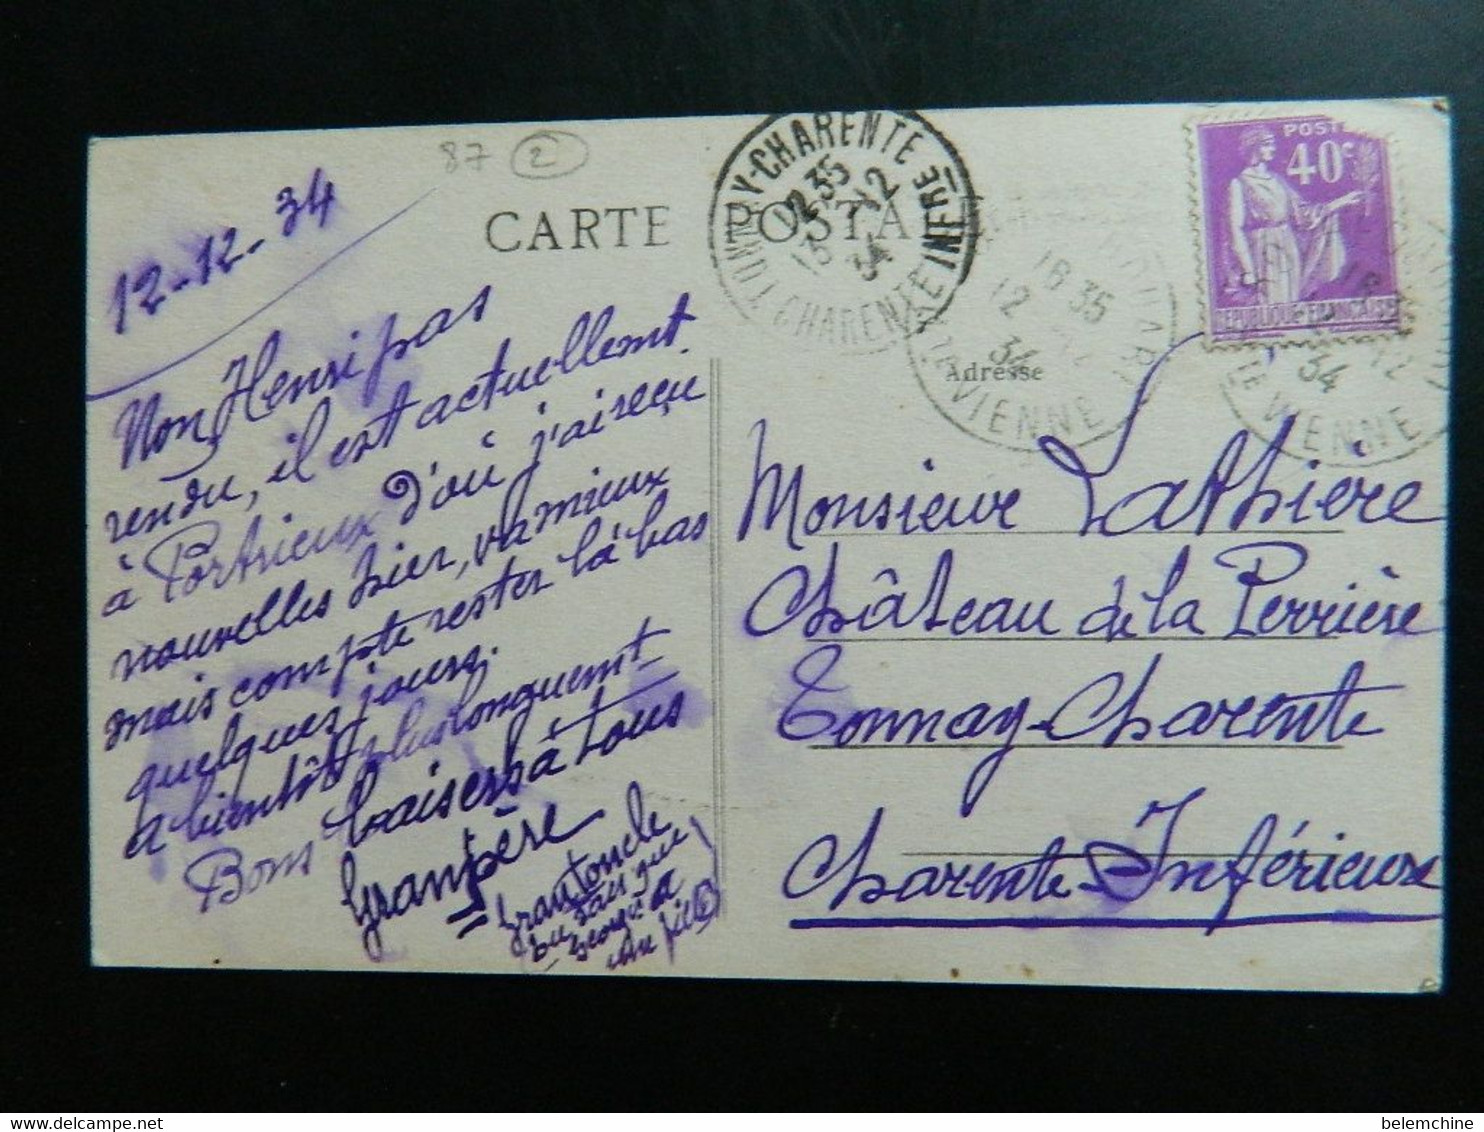 87 2
12-12-34
CARTE POSTA
Non, Henri pas
rendu, il est actuellemt
à Portrieux d'où j'ai reçu
nouvelles hier, va mieux
mais compte rester là bas
quelques jours.
a bientôt plus longuemt
Bons baisers à tous
Granpère
TONNAY-CHARENTE
CHARENTE INFRE
12 35
13 -12
34
16 35
12
34
TE VIENNE
POSTES
40c
REPUBLIQUE FRANÇAISE
34
TE VIENNE
Adresse
Monsieur Lathière
Château de la Perrière
Tonnay-Charente
Charente-Inférieure
belemchine